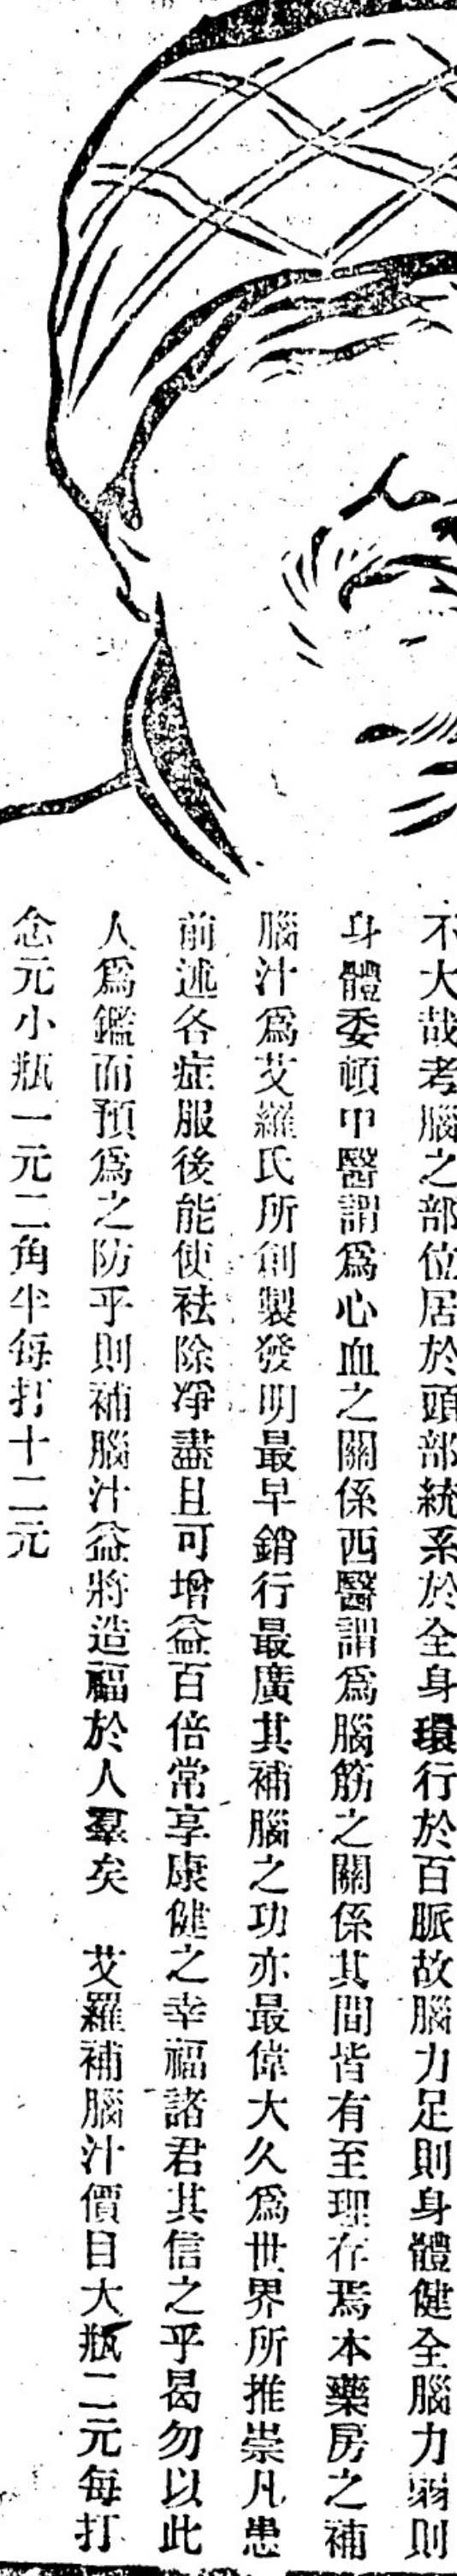 不大哉考腦之部位居於頭部統系於全身環行於百脈故腦力足則身體健全腦力弱則
身體委頓中醫謂爲心血之關係西醫謂爲腦筋之關係其間皆有至理存焉本藥房之補
腦汁爲艾羅氏所創製發明最早銷行最廣其補腦之功亦最偉大久爲世界所推崇凡患
前述各症服後能使袪除凈盡且可增益百倍常享康健之幸福諸君其信之乎曷勿以此
人爲鑑而預爲之防乎則補腦汁益將造福於人羣矣　艾羅補腦汁價目大瓶二元每打
念元小瓶一元二角半每打十二元